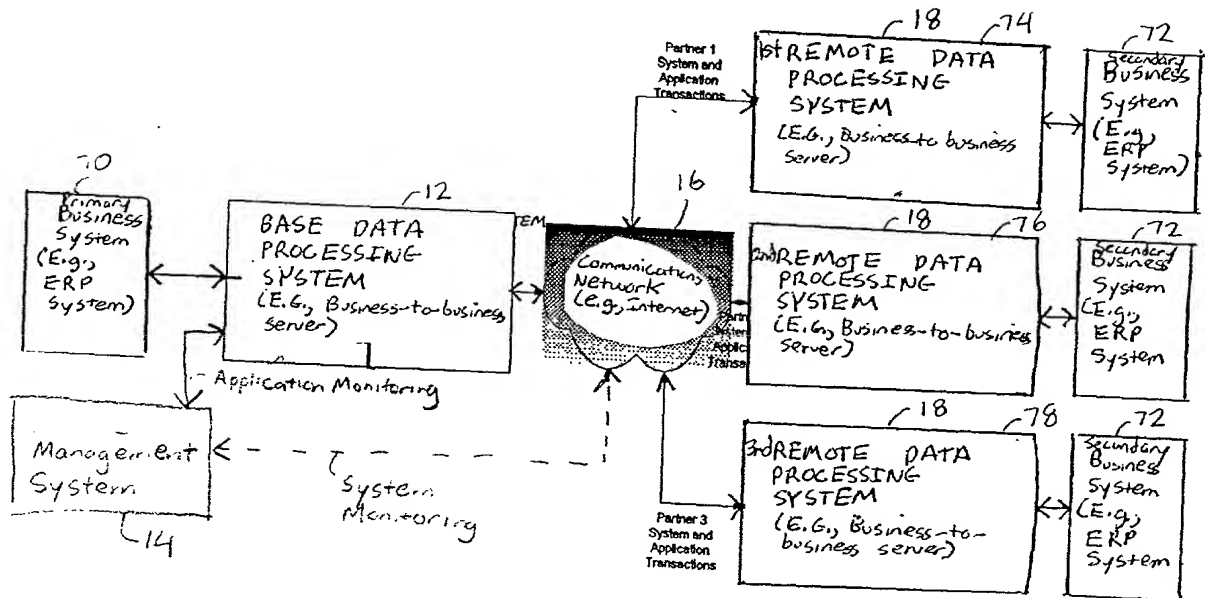 70
Primary
Business
System
(E.g.,
ERP
System)
12
BASE DATA
PROCESSING
SYSTEM
(E.G., Business-to-business
server)
Application Monitoring
Management
System
14
System
Monitoring
16
Communications
Network
(e.g., Internet)
Partner 1
System and
Application
Transactions
18
74
1st REMOTE DATA
PROCESSING
SYSTEM
(E.G., Business-to business
server)
72
Secondary
Business
System
(E.g,
ERP
System)
18
76
2nd REMOTE DATA
PROCESSING
SYSTEM
(E.G., Business-to-business
server)
72
Secondary
Business
System
(E.g,
ERP
System
Partner 3
System and
Application
Transactions
18
78
3rd REMOTE DATA
PROCESSING
SYSTEM
(E.G., Business-to-
business server)
72
Secondary
Business
System
(E.g,
ERP
System